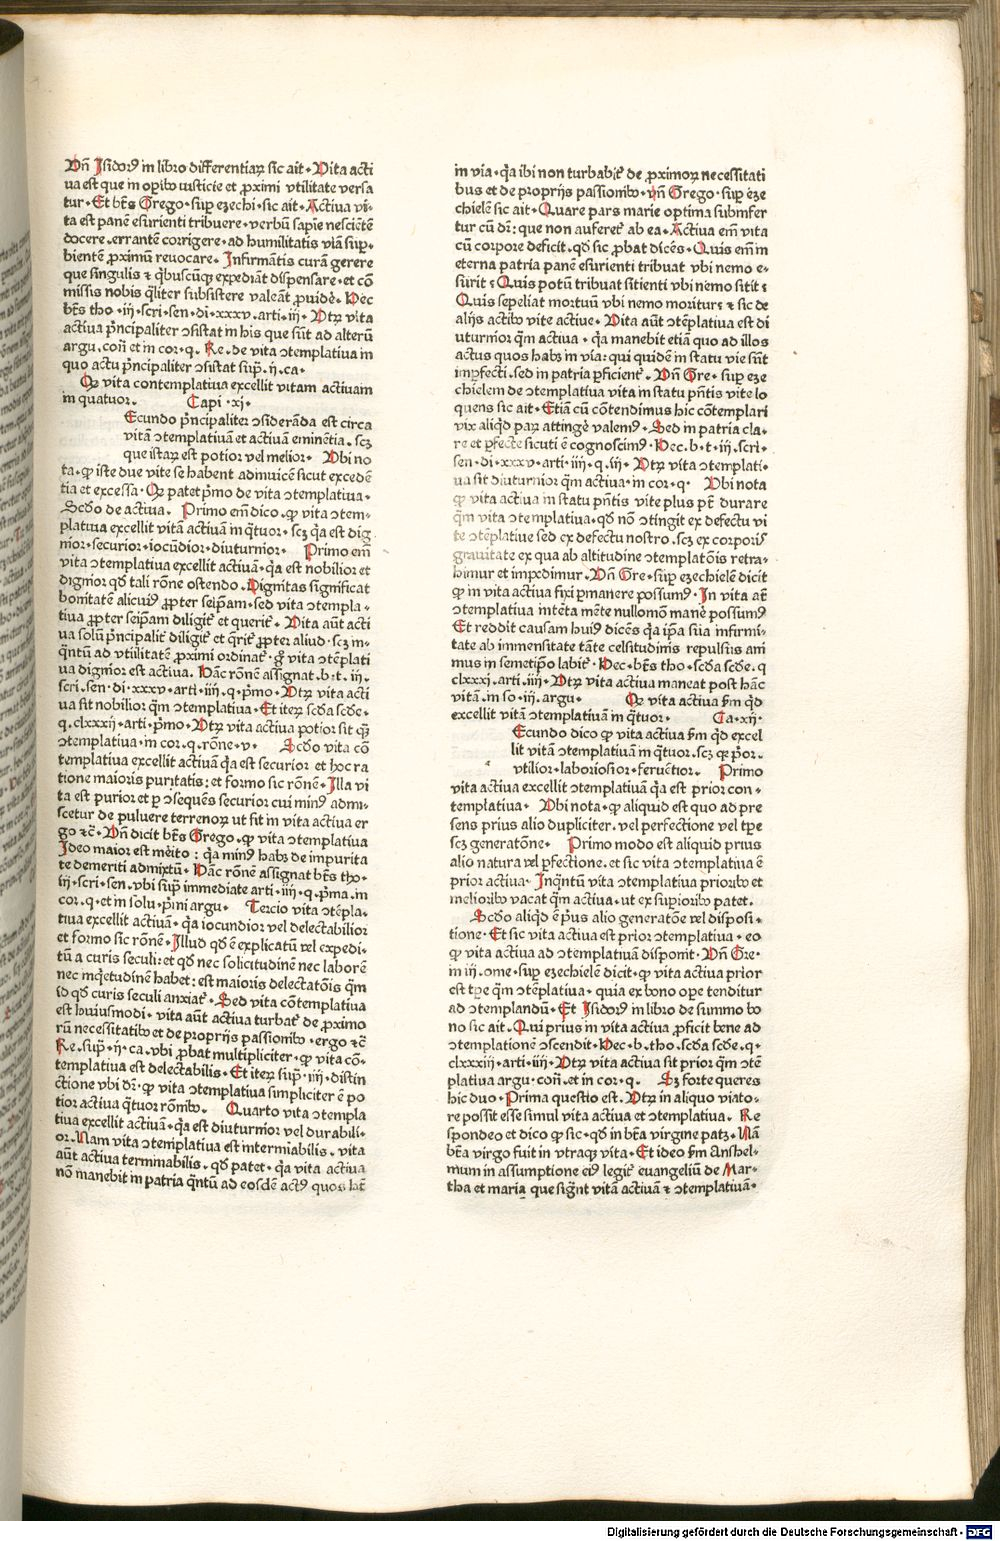 Vn̄ Isidorꝰ in libro differentiaꝝ sic ait · Vita acti
ua est que in oꝑibꝫ iusticie et ꝓximi vtilitate versa
tur · Et bt̄s Grego · suꝑ ezechi · sic ait · Actiua vi⸗
ta est panē esurienti tribuere · verbū sapīe nesciētē
docere · errantē corrigere · ad humilitatis viā suꝑ⸗
bientē ꝓximū reuocare · Infirmātis curā gerere
que singulis ⁊ q̇buscūqꝫ expediāt dispensare · et cō
missis nobis q̇liter subsistere valeāt ꝓuidē · Hec
bt̄s tho · iij · scri · sen · di · xxxv · arti · iij · Vtꝝ vita
actiua pn̄cipaliter ꝯsistat in his que sūt ad alterū
argu · con̄ et in cor · q · Re · de vita ꝯtemplatiua in
quo actu pn̄cipaliter ꝯsistat suꝑ · ij · ca ·
Qꝫ vita contemplatiua excellit vitam actiuam
in quatuor · Capi · xj ·
Ecundo pn̄cipaliter ꝯsiderāda est circa
vitā ꝯtemplatiuā et actiuā eminētia · scꝫ
que istaꝝ est potior vel melior · Vbi no
ta · ꝙ iste due vite se habent adinuicē sicut excedē
tia et excessa · Qꝫ patet pͥmo de vita ꝯtemplatiua ·
Scd̄o de actiua · Primo em̄ dico · ꝙ vita ꝯtem⸗
platiua excellit vitā actiuā in q̇tuor · scꝫ q̇a est dig
nior · securior · iocūdior · diuturnior · Primo em̄
vita ꝯtemplatiua excellit actiuā · q̇a est nobilior et
dignior qd̄ tali rōne ostendo · Dignitas significat
bonitatē alicuiꝰ ꝓpter seip̄am · sed vita ꝯtempla⸗
tiua ꝓpter seip̄am diligit᷑ et querit᷑ · Vita aūt acti
ua solū pn̄cipalit᷑ diligit᷑ et q̄rit᷑ ꝓpter aliud · scꝫ in⸗
q̇ntū ad vtilitatē ꝓximi ordinat᷑ · gͦ vita ꝯtēplati
ua dignior est actiua · Hāc rōnē assignat · b · t · iij ·
scri · sen · di · xxxv · arti · iiij · q · pͥmo · Vtꝝ vita acti
ua sit nobilior q̄m ꝯtemplatiua · Et iteꝝ scd̄a scd̄e ·
q · clxxxij · arti · pͥmo · Vtꝝ vita actiua potior sit q̄ꝫ
ꝯtemplatiua · in cor · q · rōne · v · Scd̄o vita cō
templatiua excellit actiuā q̇a est securior et hoc ra
tione maioris puritatis : et formo sic rōnē · Illa vi
ta est purior et ꝑ ꝯsequēs securior cui minꝰ admi⸗
scetur de puluere terrenoꝝ ut sit in vita actiua er
go ⁊c̄ · Vn̄ dicit bt̄s Grego · ꝙ vita ꝯtemplatiua
Ideo maior est mēito : q̇a minꝰ habꝫ de impurita
te demeriti admixtū · Hāc rōnē assignat bt̄s tho ·
iij · scri · sen · vbi suꝑ immediate arti · iiij · q · pͥma · in
cor · q · et in solu · pͥni argu · Tercio vita ꝯtēpla⸗
tiua excellit actiuā · q̇a iocundior vel delectabilior
et formo sic rōnē · Illud qd̄ ē explicatū vel expedi⸗
tū a curis seculi : et qd̄ nec solicitudinē nec laborē
nec inq̇etudinē habet : est maioris delectatōis q̄m
id qd̄ curis seculi anxiat᷑ · Sed vita cōtemplatiua
est huiusmodi · vita aūt actiua turbat᷑ de ꝓximo
rū necessitatibꝫ et de proprijs passionibꝫ · ergo ⁊c̄
Re · suꝑ · ij · ca · vbi ꝓbat multipliciter · ꝙ vita cō⸗
templatiua est delectabilis · Et iteꝝ suꝑ · iiij · distin
ctione vbi dr̄ · ꝙ vita ꝯtemplatiua simpliciter ē po
tior actiua q̇tuor rōnibꝫ · Quarto vita ꝯtempla
tiua excellit actiuā · q̇a est diuturnior vel durabili⸗
or · Nam vita ꝯtemplatiua est interminabilis · vita
aūt actiua terminabilis · qd̄ patet · q̇a vita actiua
nō manebit in patria q̇ntū ad eosdē actꝰ quos ht̄
in via · q̇a ibi non turbabit᷑ de ꝓximoꝝ necessitati
bus et de proprijs passionibꝫ · vn̄ Grego · suꝑ eze
chielē sic ait · Quare pars marie optima subinfer
tur cū dr̄ : que non auferet᷑ ab ea · Actiua em̄ vita
cū corpore deficit · qd̄ sic ꝓbat dicēs · Quis em̄ in
eterna patria panē esurienti tribuat vbi nemo e⸗
surit ? Quis potū tribuat sitienti vbi nemo sitit ?
Quis sepeliat mortuū vbi nemo moritur ? ⁊ sic de
alijs actibꝫ vite actiue · Vita aūt ꝯtēplatiua est di
uturnior q̄m actiua · q̇a manebit etiā quo ad illos
actus quos habꝫ in via : qui quidē in statu vie sūt
imꝑfecti · sed in patria ꝑficient᷑ · Vn̄ Gre · suꝑ eze
chielem de ꝯtemplatiua vita in statu pn̄tis vite lo
quens sic ait · Etiā cū cōtendimus hic cōtemplari
vix aliqd̄ paꝝ attingē valemꝰ · Sed in patria cla⸗
re et ꝑfecte sicuti ē cognoscimꝰ · Hec · b · t · iij · scri ·
sen · di · xxxv · arti · iiij · q · iij · Vtꝝ vita ꝯtemplati⸗
ua sit diuturnior q̄m actiua · in cor · q · Vbi nota
ꝙ vita actiua in statu pn̄tis vite plus pt̄ durare
q̄m vita ꝯtemplatiua · qd̄ nō ꝯtingit ex defectu vi
te ꝯtēplatiue sed ex defectu nostro · scꝫ ex corporis
grauitate ex qua ab altitudine ꝯtemplatōis retra⸗
himur et impedimur · Vn̄ Gre · suꝑ ezechielē dicit
ꝙ in vita actiua fixi ꝑmanere possumꝰ · In vita aūt
ꝯtemplatiua intēta mēte nullomō manē possumꝰ
Et reddit causam huiꝰ dicēs q̇a ip̄a sua infirmi⸗
tate ab immensitate tāte celsitudinis repulsus ani
mus in semetip̄o labit᷑ · Hec · bt̄s tho · scd̄a scd̄e · q
clxxxj · arti · iiij · Vtꝝ vita actiua maneat post hāc
vitā · in so · iij · argu · Qꝫ vita actiua fm̄ qd̄
excellit vitā ꝯtemplatiuā in q̇tuor · Ca · xij ·
Ecundo dico ꝙ vita actiua fm̄ qd̄ excel
lit vitā ꝯtemplatiuā in q̇tuor · scꝫ qꝫ pͥor ·
vtilior · laboriosior · feruētior · Primo
vita actiua excellit ꝯtemplatiuā q̇a est prior con⸗
templatiua · Vbi nota · ꝙ aliquid est quo ad pre
sens prius alio dupliciter · vel perfectione vel tp̄e
scꝫ generatōne · Primo modo est aliquid prius
alio natura vel ꝑfectione · et sic vita ꝯtemplatiua ē
prior actiua · Inq̇ntū vita ꝯtemplatiua prioribꝫ et
melioribꝫ vacat q̄m actiua · ut ex suꝑioribꝫ patet ·
Scd̄o aliqd̄ ē pͥus alio generatōe vel disposi⸗
tione · Et sic vita actiua est prior ꝯtemplatiua · eo
ꝙ vita actiua ad ꝯtemplatiuā disponit · Vn̄ Gre ·
in iij · ome · suꝑ ezechielē dicit · ꝙ vita actiua prior
est tp̄e q̄m ꝯtēplatiua · quia ex bono oꝑe tenditur
ad ꝯtemplandū · Et Isidorꝰ in libro de summo bo
no sic ait · Qui prius in vita actiua ꝓficit bene ad
ꝯtemplationē ꝯscendit · Hec · b · tho · scd̄a scd̄e · q ·
clxxxij · arti · iiij · Vtꝝ vita actiua sit prior q̄m ꝯtē
platiua argu · con̄ · et in cor · q · Sꝫ forte queres
hic duo · Prima questio est · Vtꝝ in aliquo viato⸗
re possit esse simul vita actiua et ꝯtemplatiua · Re
spondeo et dico ꝙ sic · qd̄ in bt̄a virgine patꝫ · Nā
bt̄a virgo fuit in vtraqꝫ vita · Et ideo fm̄ Anshel⸗
mum in assumptione eiꝰ legit᷑ euangeliū de Mar⸗
tha et maria que sign̄t vitā actiuā ⁊ ꝯtemplatiuā ·
Digitalisierung gefördert durch die Deutsche Forschungsgemeinschaft - DFG